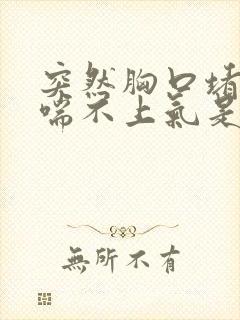 突然胸口堵
喘不上氣是
無所不有